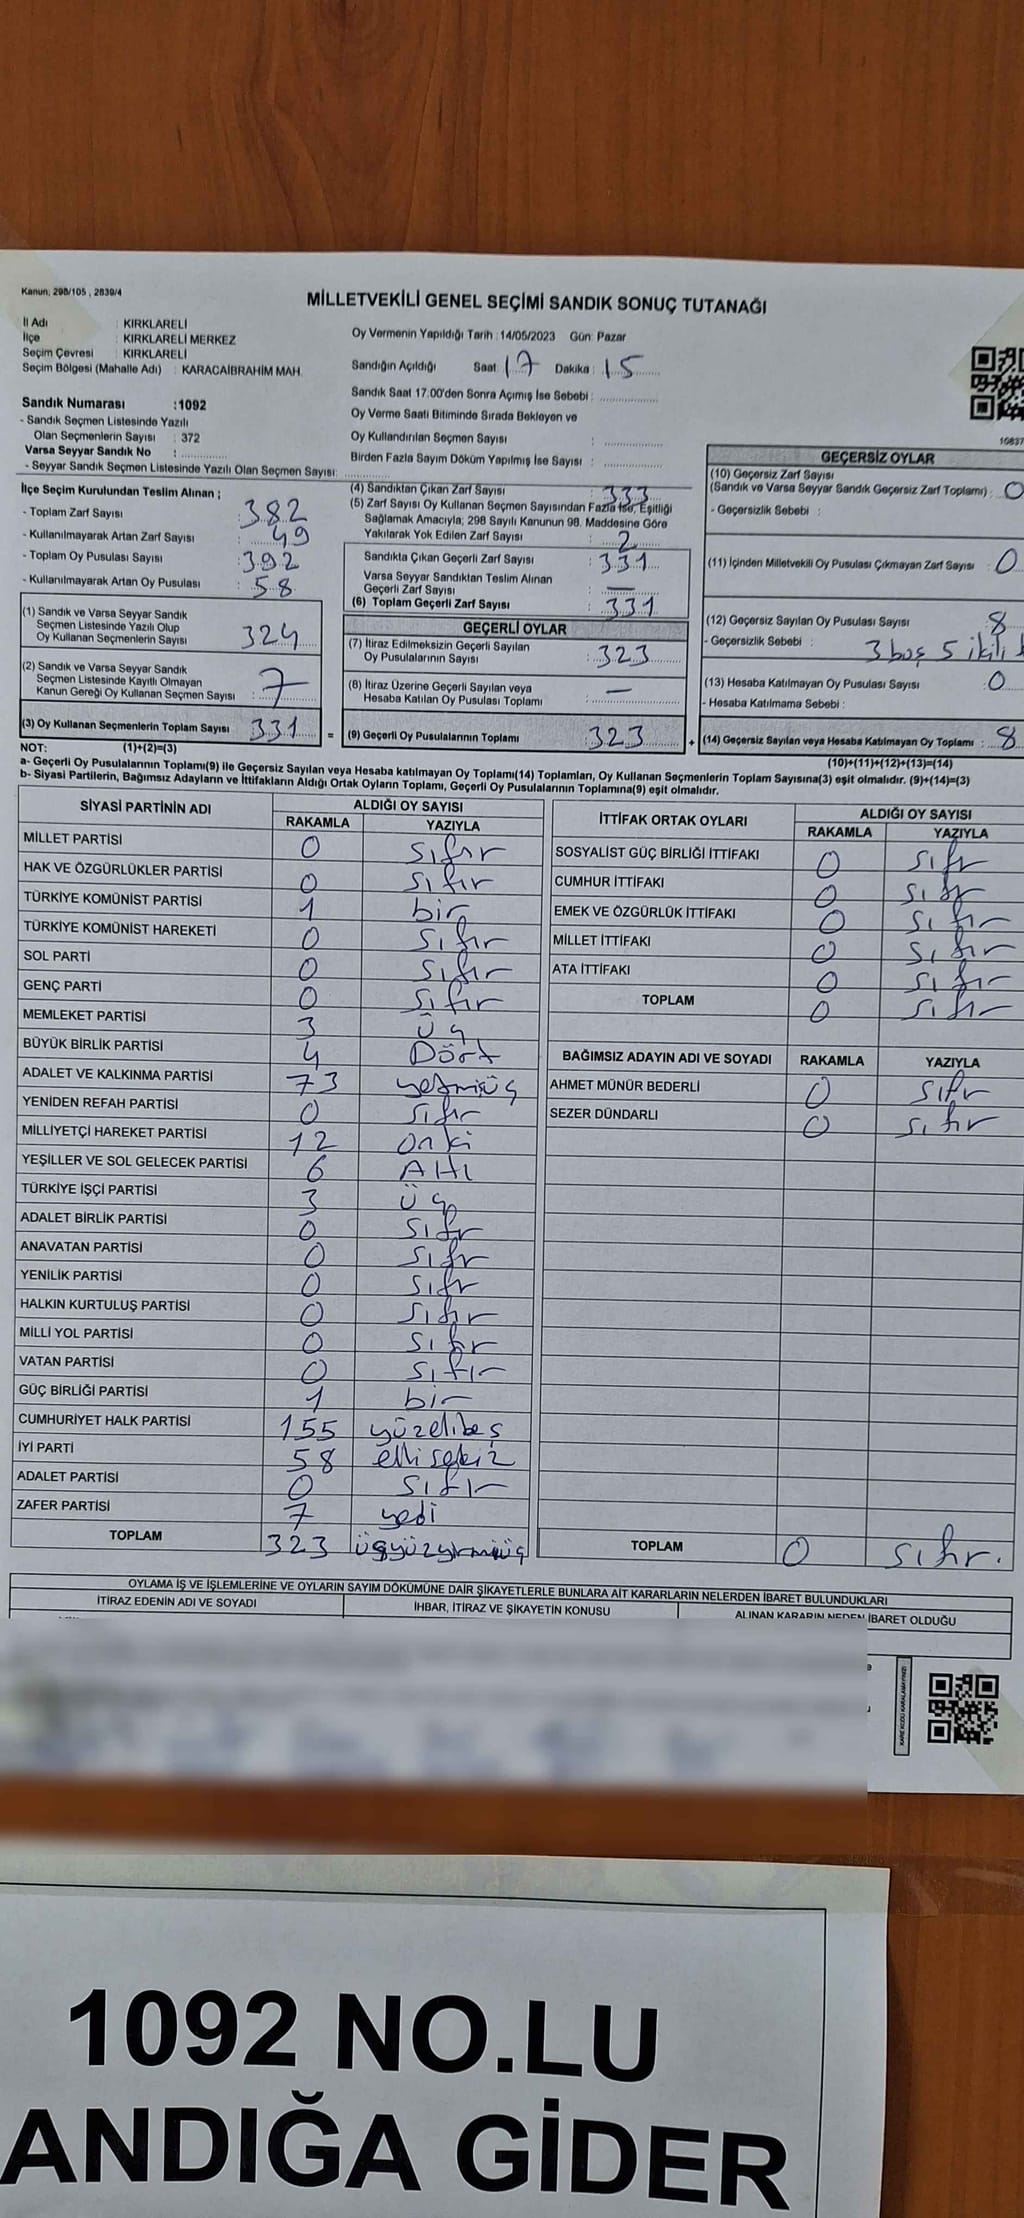 Kanun; 298/105 , 2839/4
MİLLETVEKİLİ GENEL SEÇİMİ SANDIK SONUÇ TUTANAĞI
İl Adı : KIRKLARELİ
İlçe : KIRKLARELİ MERKEZ
Seçim Çevresi : KIRKLARELİ
Seçim Bölgesi (Mahalle Adı) : KARACAİBRAHİM MAH.
Sandık Numarası :1092
- Sandık Seçmen Listesinde Yazılı
Olan Seçmenlerin Sayısı : 372
Varsa Seyyar Sandık No :
- Seyyar Sandık Seçmen Listesinde Yazılı Olan Seçmen Sayısı:
Oy Vermenin Yapıldığı Tarih :14/05/2023 Gün: Pazar
Sandığın Açıldığı Saat: 17 Dakika: 15
Sandık Saat 17:00'den Sonra Açımış İse Sebebi :
Oy Verme Saati Bitiminde Sırada Bekleyen ve
Oy Kullandırılan Seçmen Sayısı :
Birden Fazla Sayım Döküm Yapılmış İse Sayısı :
10837
İlçe Seçim Kurulundan Teslim Alınan ;
- Toplam Zarf Sayısı : 382
- Kullanılmayarak Artan Zarf Sayısı : 49
- Toplam Oy Pusulası Sayısı : 392
- Kullanılmayarak Artan Oy Pusulası : 58
(1) Sandık ve Varsa Seyyar Sandık
Seçmen Listesinde Yazılı Olup
Oy Kullanan Seçmenlerin Sayısı : 324
(2) Sandık ve Varsa Seyyar Sandık
Seçmen Listesinde Kayıtlı Olmayan
Kanun Gereği Oy Kullanan Seçmen Sayısı : 7
(3) Oy Kullanan Seçmenlerin Toplam Sayısı : 331 =
(4) Sandıktan Çıkan Zarf Sayısı : 333
(5) Zarf Sayısı Oy Kullanan Seçmen Sayısından Fazla İse, Eşitliği
Sağlamak Amacıyla; 298 Sayılı Kanunun 98. Maddesine Göre
Yakılarak Yok Edilen Zarf Sayısı : 2
Sandıkta Çıkan Geçerli Zarf Sayısı : 331
Varsa Seyyar Sandıktan Teslim Alınan
Geçerli Zarf Sayısı : —
(6) Toplam Geçerli Zarf Sayısı : 331
GEÇERLİ OYLAR
(7) İtiraz Edilmeksizin Geçerli Sayılan
Oy Pusulalarının Sayısı : 323
(8) İtiraz Üzerine Geçerli Sayılan veya
Hesaba Katılan Oy Pusulası Toplamı : —
(9) Geçerli Oy Pusulalarının Toplamı : 323 +
GEÇERSİZ OYLAR
(10) Geçersiz Zarf Sayısı
(Sandık ve Varsa Seyyar Sandık Geçersiz Zarf Toplamı) : 0
- Geçersizlik Sebebi :
(11) İçinden Milletvekili Oy Pusulası Çıkmayan Zarf Sayısı : 0
(12) Geçersiz Sayılan Oy Pusulası Sayısı : 8
- Geçersizlik Sebebi : 3 boş 5 ikili
(13) Hesaba Katılmayan Oy Pusulası Sayısı : 0
- Hesaba Katılmama Sebebi :
(14) Geçersiz Sayılan veya Hesaba Katılmayan Oy Toplamı : 8
NOT: (1)+(2)=(3) (10)+(11)+(12)+(13)=(14)
a- Geçerli Oy Pusulalarının Toplamı(9) ile Geçersiz Sayılan veya Hesaba katılmayan Oy Toplamı(14) Toplamları, Oy Kullanan Seçmenlerin Toplam Sayısına(3) eşit olmalıdır. (9)+(14)=(3)
b- Siyasi Partilerin, Bağımsız Adayların ve İttifakların Aldığı Ortak Oyların Toplamı, Geçerli Oy Pusulalarının Toplamına(9) eşit olmalıdır.
SİYASİ PARTİNİN ADI ALDIĞI OY SAYISI
RAKAMLA YAZIYLA
MİLLET PARTİSİ 0 sıfır
HAK VE ÖZGÜRLÜKLER PARTİSİ 0 sıfır
TÜRKİYE KOMÜNİST PARTİSİ 1 bir
TÜRKİYE KOMÜNİST HAREKETİ 0 sıfır
SOL PARTİ 0 sıfır
GENÇ PARTİ 0 sıfır
MEMLEKET PARTİSİ 3 üç
BÜYÜK BİRLİK PARTİSİ 4 Dört
ADALET VE KALKINMA PARTİSİ 73 yetmişüç
YENİDEN REFAH PARTİSİ 0 sıfır
MİLLİYETÇİ HAREKET PARTİSİ 12 oniki
YEŞİLLER VE SOL GELECEK PARTİSİ 6 Altı
TÜRKİYE İŞÇİ PARTİSİ 3 üç
ADALET BİRLİK PARTİSİ 0 sıfır
ANAVATAN PARTİSİ 0 sıfır
YENİLİK PARTİSİ 0 sıfır
HALKIN KURTULUŞ PARTİSİ 0 sıfır
MİLLİ YOL PARTİSİ 0 sıfır
VATAN PARTİSİ 0 sıfır
GÜÇ BİRLİĞİ PARTİSİ 1 bir
CUMHURİYET HALK PARTİSİ 155 yüzelibeş
İYİ PARTİ 58 ellisekiz
ADALET PARTİSİ 0 sıfır
ZAFER PARTİSİ 7 yedi
TOPLAM 323 üçyüzyirmiüç
İTTİFAK ORTAK OYLARI ALDIĞI OY SAYISI
RAKAMLA YAZIYLA
SOSYALİST GÜÇ BİRLİĞİ İTTİFAKI 0 sıfır
CUMHUR İTTİFAKI 0 sıfır
EMEK VE ÖZGÜRLÜK İTTİFAKI 0 sıfır
MİLLET İTTİFAKI 0 sıfır
ATA İTTİFAKI 0 sıfır
TOPLAM 0 sıfır
BAĞIMSIZ ADAYIN ADI VE SOYADI RAKAMLA YAZIYLA
AHMET MÜNÜR BEDERLİ 0 sıfır
SEZER DÜNDARLI 0 sıfır
TOPLAM 0 sıfır.
OYLAMA İŞ VE İŞLEMLERİNE VE OYLARIN SAYIM DÖKÜMÜNE DAİR ŞİKAYETLERLE BUNLARA AİT KARARLARIN NELERDEN İBARET BULUNDUKLARI
İTİRAZ EDENİN ADI VE SOYADI İHBAR, İTİRAZ VE ŞİKAYETİN KONUSU ALINAN KARARIN NEDEN İBARET OLDUĞU
KARE KODU KARALAMAYINIZ!
1092 NO.LU
ANDIĞA GİDER